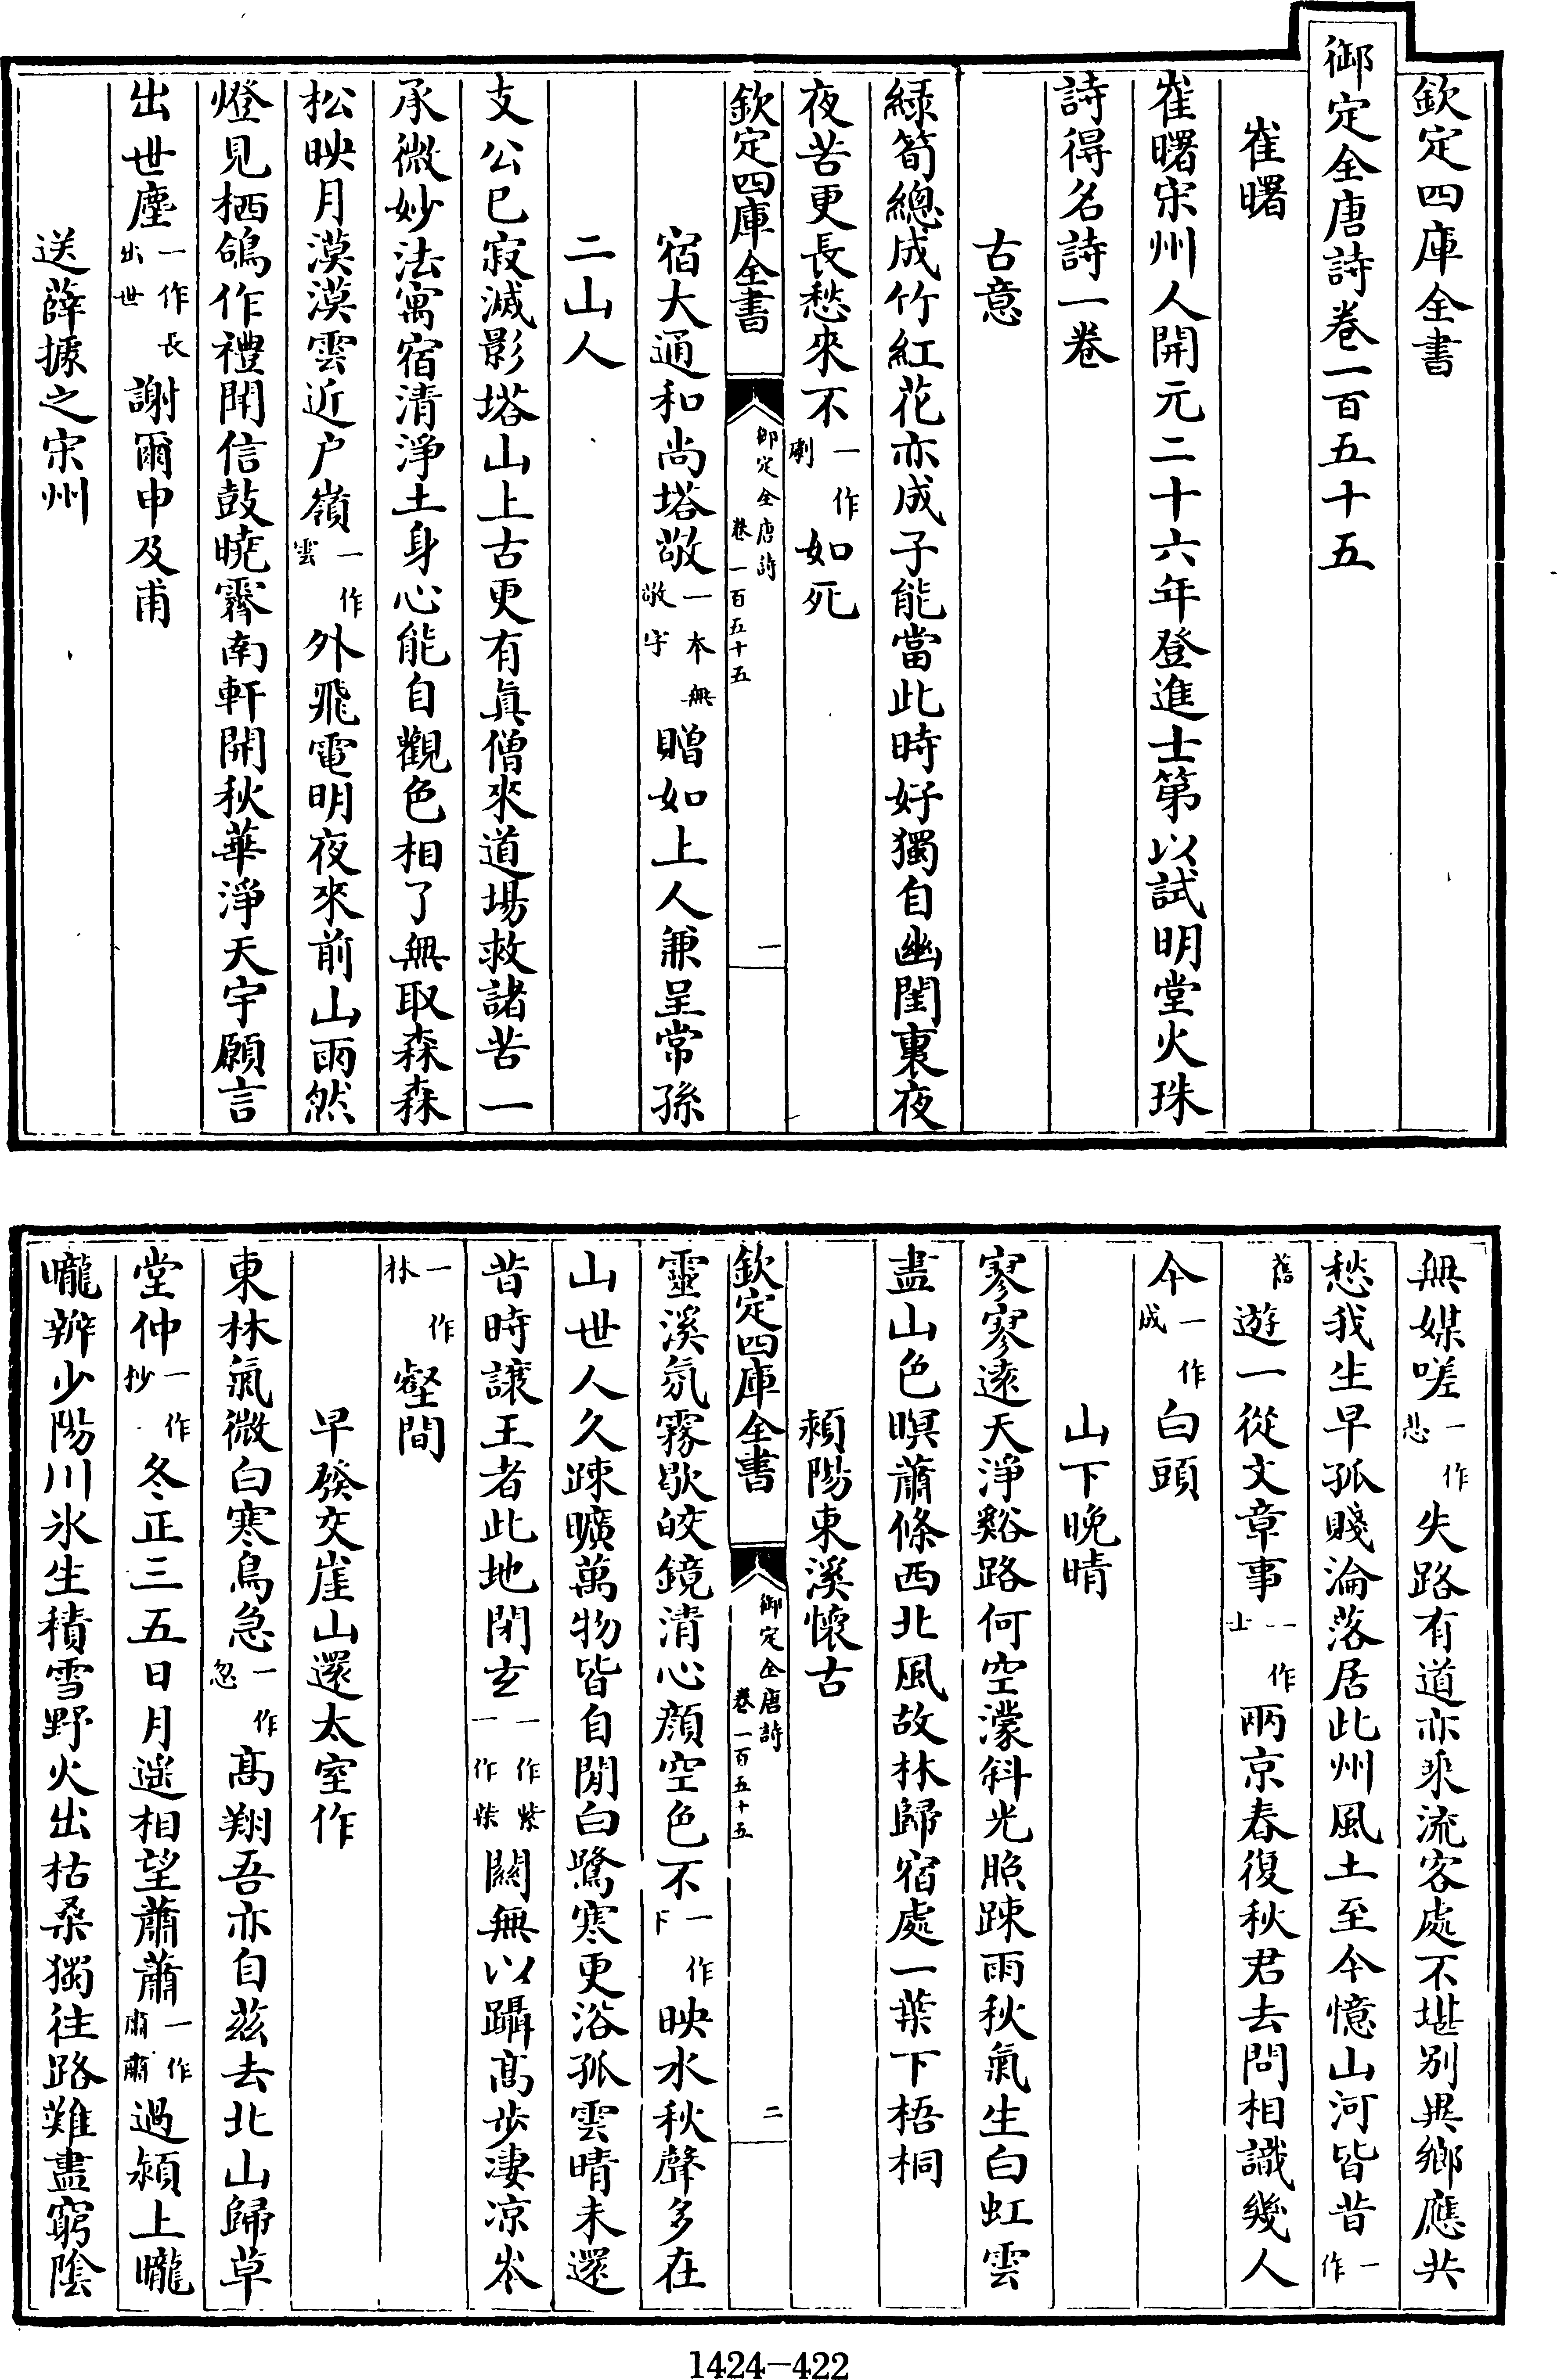 欽定四庫全書
御定全唐詩卷一百五十五
崔曙
崔曙宋州人開元二十六年登進士第以試明堂火珠
詩得名詩一卷
古意
綠筍總成竹紅花亦成子能當此時好獨自幽閨裏夜
夜苦更長愁來不一作劇如死
欽定四庫全書 御定全唐詩卷一百五十五 一
宿大通和尚塔敬一本無敬字贈如上人兼呈常孫
二山人
支公已寂滅影塔山上古更有真僧來道場救諸苦一
承微妙法寓宿清淨土身心能自觀色相了無取森森
松映月漠漠雲近户嶺一作雲外飛電明夜來前山雨然
燈見栖鴿作禮聞信鼓曉霽南軒開秋華淨天宇願言
出世塵一作長出世謝爾申及甫
送薛據之宋州
無媒嗟一作悲失路有道亦乘流客處不堪别異鄉應共
愁我生早孤賤淪落居此州風土至今憶山河皆昔一作
舊遊一從文章事一作士兩京春復秋君去問相識幾人
今一作成白頭
山下晚晴
寥寥遠天淨谿路何空濛斜光照疎雨秋氣生白虹雲
盡山色暝蕭條西北風故林歸宿處一葉下梧桐
潁陽東溪懷古
欽定四庫全書 御定全唐詩卷一百五十五 二
靈溪氛霧歇皎鏡清心顔空色不一作下映水秋聲多在
山世人久疎曠萬物皆自閒白鷺寒更浴孤雲晴未還
昔時讓王者此地閉玄一作紫一作柴關無以躡高步淒凉岑
一作林壑間
早發交崖山還太室作
東林氣微白寒鳥急一作忽高翔吾亦自茲去北山歸草
堂仲一作抄冬正三五日月遥相望蕭蕭一作肅肅過潁上曨
曨辨少陽川氷生積雪野火出枯桑獨往路難盡窮陰
1424—422